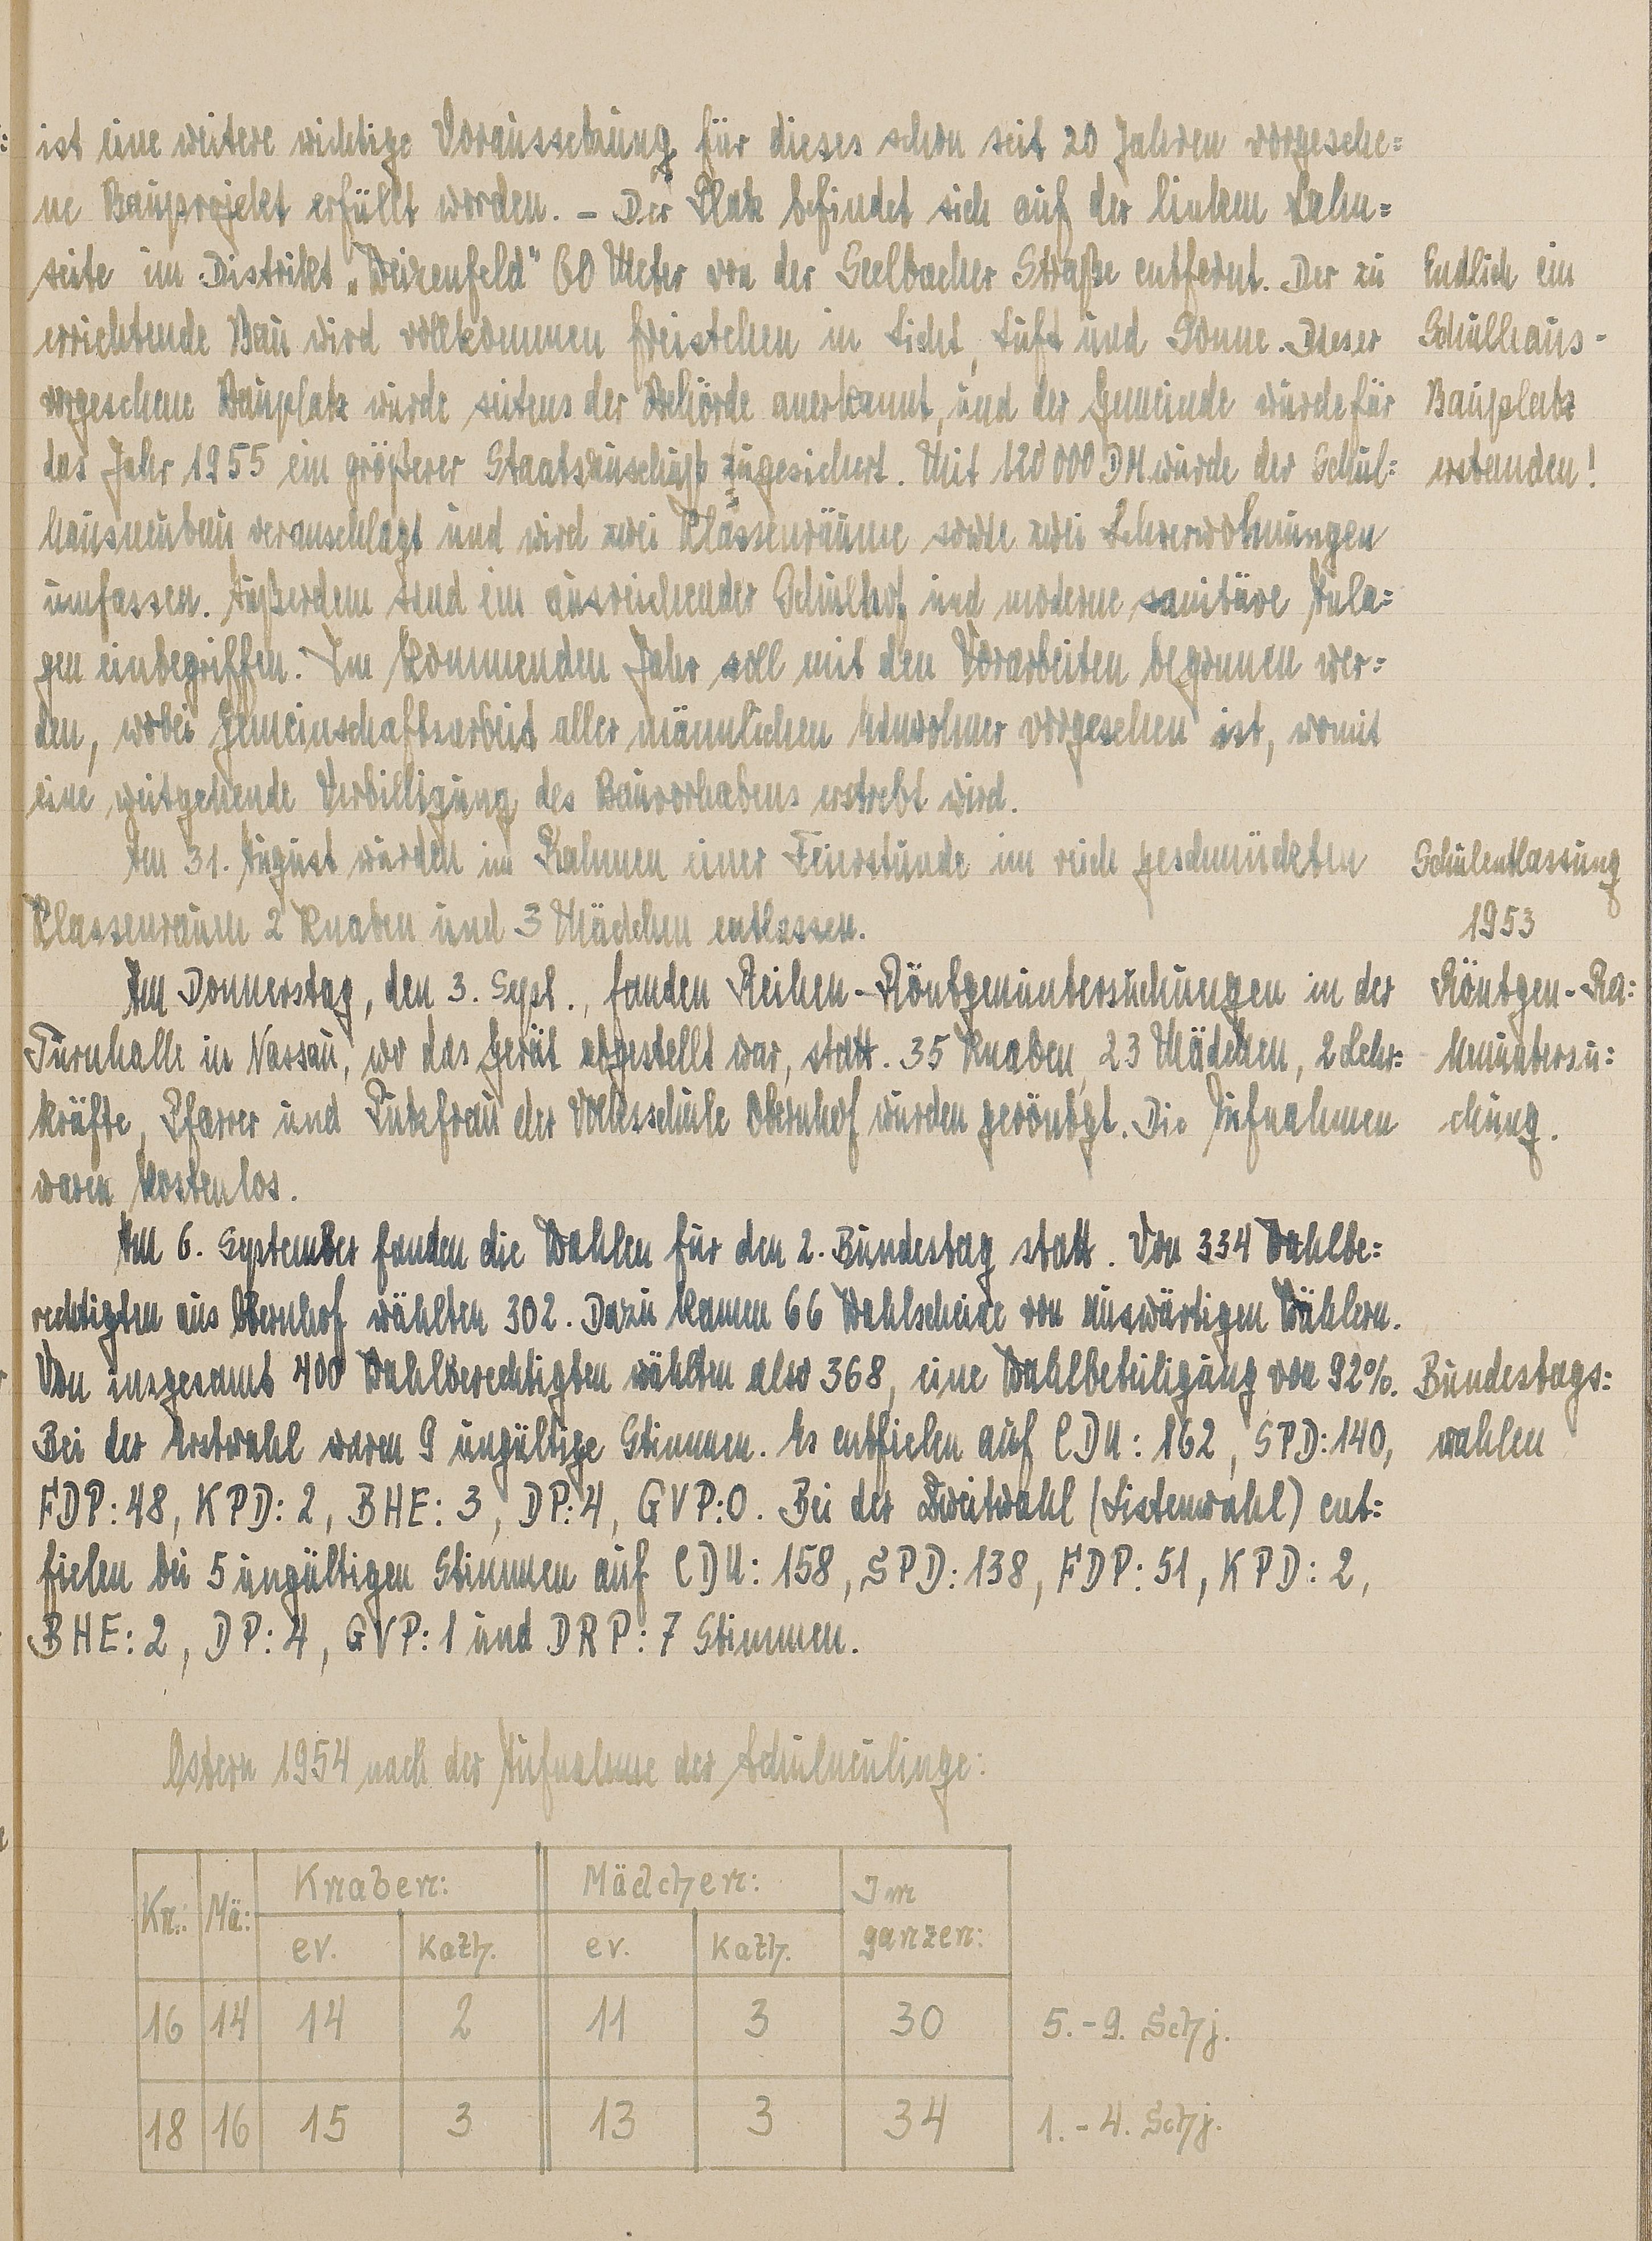 ist eine weitere wichtige Voraussetzung für dieses schon seit 20 Jahren vorgesehe=
ne Bauprojekt erfüllt worden. – Der Platz befindet sich auf der linken Lahn=
seite im Distrikt „Weizenfeld" 60 Meter von der Seelbacher Straße entfernt. Der zu
errichtende Bau wird vollkommen freistehen in Licht, Luft und Sonne. Dieser
vorgesehene Bauplatz wurde seitens der Behörde anerkannt, und der Gemeinde wurde für
das Jahr 1955 ein größerer Staatszuschuß zugesichert. Mit 120 000 DM wurde der Schul=
hausneubau veranschlagt und wird zwei Klassenräume sowie zwei Lehrerwohnungen
umfassen. Außerdem sind ein ausreichender Schulhof und moderne sanitäre Anla=
gen einbegriffen. Im kommenden Jahr soll mit den Vorarbeiten begonnen wer=
den, wobei Gemeinschaftsarbeit aller männlichen Einwohner vorgesehen ist, womit
eine weitgehende Verbilligung des Bauvorhabens erstrebt wird.
Endlich ein
Schulhaus-
Bauplatz
erstanden!
Am 31. August wurden im Rahmen einer Feierstunde im reich geschmückten
Klassenraum 2 Knaben und 3 Mädchen entlassen.
Schulentlassung
1953
Am Donnerstag, den 3. Sept., fanden Reihen-Röntgenuntersuchungen in der
Turnhalle in Nassau, wo das Gerät abgestellt war, statt. 35 Knaben, 23 Mädchen, 2 Lehr=
kräfte, Pfarrer und Putzfrau der Volksschule Obernhof wurden geröntgt. Die Aufnahmen
waren kostenlos.
Röntgen-Rei=
henuntersu=
chung.
Am 6. September fanden die Wahlen für den 2. Bundestag statt. Von 334 Wahlbe=
rechtigten aus Obernhof wählten 302. Dazu kamen 66 Wahlscheine von auswärtigen Wählern.
Von insgesamt 400 Wahlberechtigten wählten also 368, eine Wahlbeteiligung von 92%.
Bei der Erstwahl waren 9 ungültige Stimmen. Es entfielen auf CDU: 162, SPD: 140,
FDP: 48, KPD: 2, BHE: 3, DP: 4, GVP: 0. Bei der Zweitwahl (Listenwahl) ent=
fielen bei 5 ungültigen Stimmen auf CDU: 158, SPD: 138, FDP: 51, KPD: 2,
BHE: 2, DP: 4, GVP: 1 und DRP: 7 Stimmen.
Bundestags=
wahlen
Ostern 1954 nach der Aufnahme der Schulneulinge:
Kn.: Mä: Knaben: Mädchen: Im ganzen:
ev. kath. ev. kath.
16 14 14 2 11 3 30 5.-9. Schj.
18 16 15 3 13 3 34 1.-4. Schj.